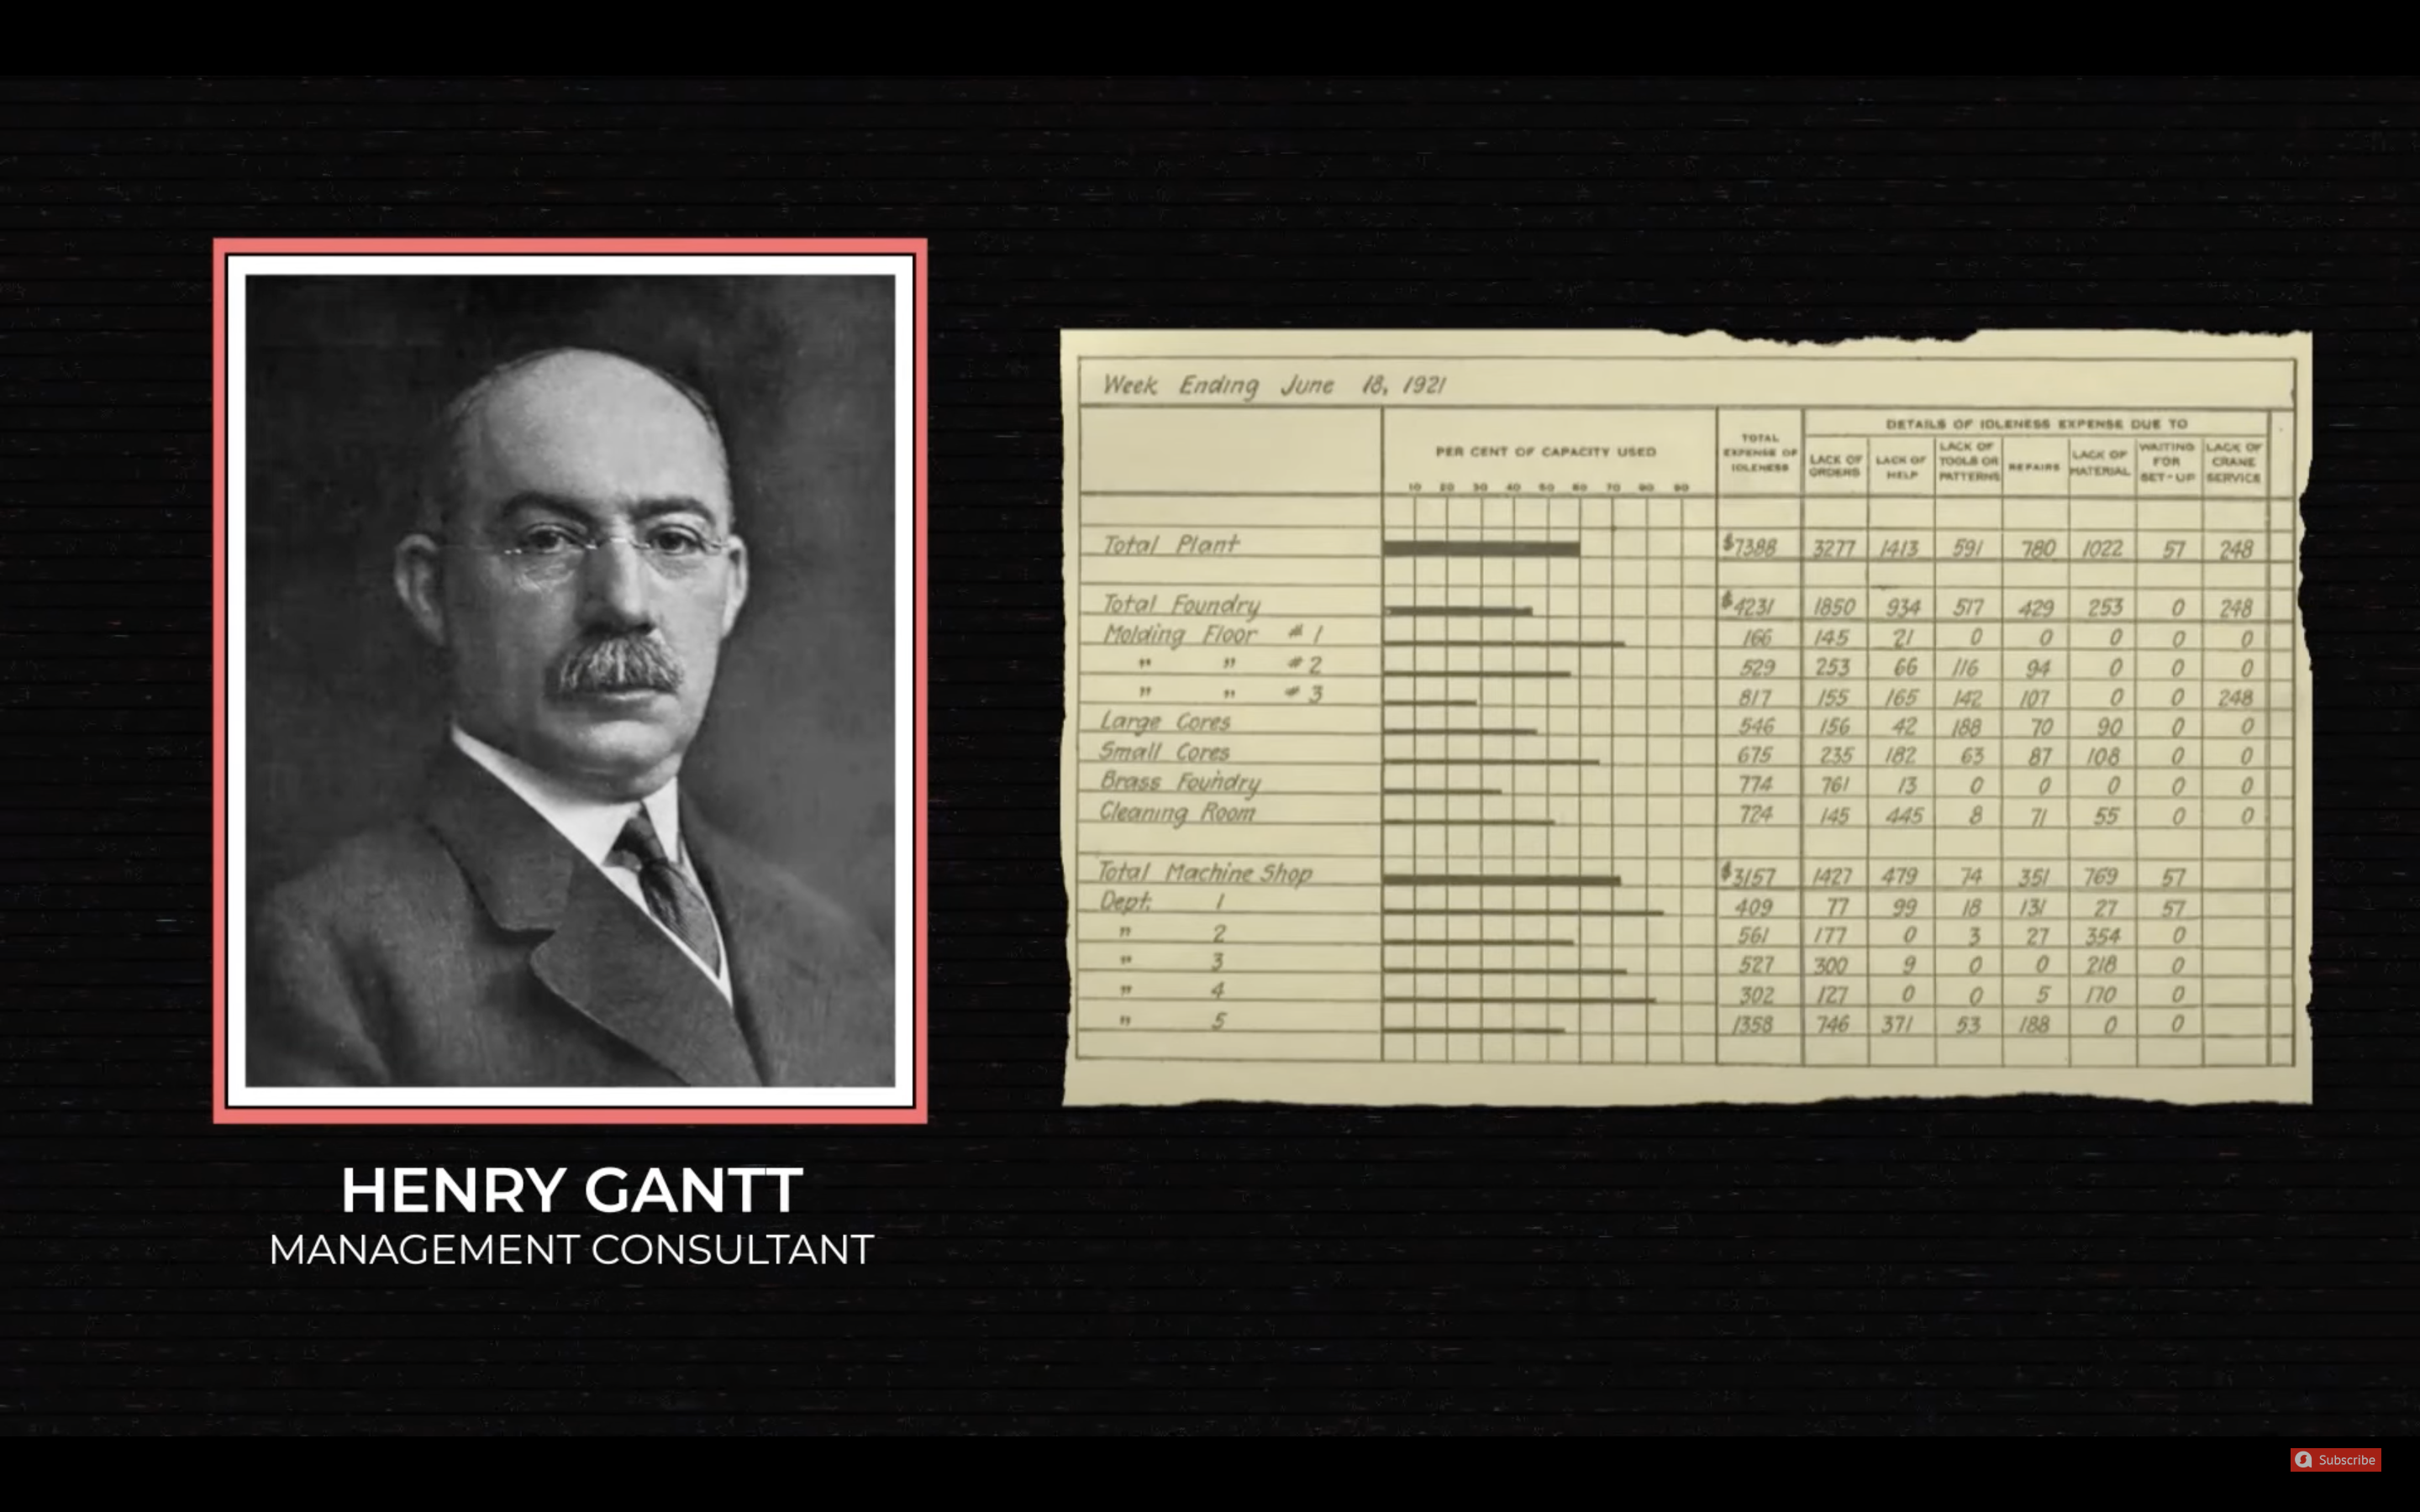 HENRY GANTT
MANAGEMENT CONSULTANT
Week Ending June 18, 1921
PER CENT OF CAPACITY USED
10 20 30 40 50 60 70 80 90
TOTAL EXPENSE OF IDLENESS
DETAILS OF IDLENESS EXPENSE DUE TO
LACK OF ORDERS
LACK OF HELP
LACK OF TOOLS OR PATTERNS
REPAIRS
LACK OF MATERIAL
WAITING FOR SET-UP
LACK OF CRANE SERVICE
Total Plant $7388 3277 1413 591 780 1022 57 248
Total Foundry $4231 1850 934 517 429 253 0 248
Molding Floor #1 166 145 21 0 0 0 0 0
" " #2 529 253 66 116 94 0 0 0
" " #3 817 155 165 142 107 0 0 248
Large Cores 546 156 42 188 70 90 0 0
Small Cores 675 235 182 63 87 108 0 0
Brass Foundry 774 761 13 0 0 0 0 0
Cleaning Room 724 145 445 8 71 55 0 0
Total Machine Shop $3157 1427 479 74 351 769 57
Dept: 1 409 77 99 18 131 27 57
" 2 561 177 0 3 27 354 0
" 3 527 300 9 0 0 218 0
" 4 302 127 0 0 5 170 0
" 5 1358 746 371 53 188 0 0
Subscribe